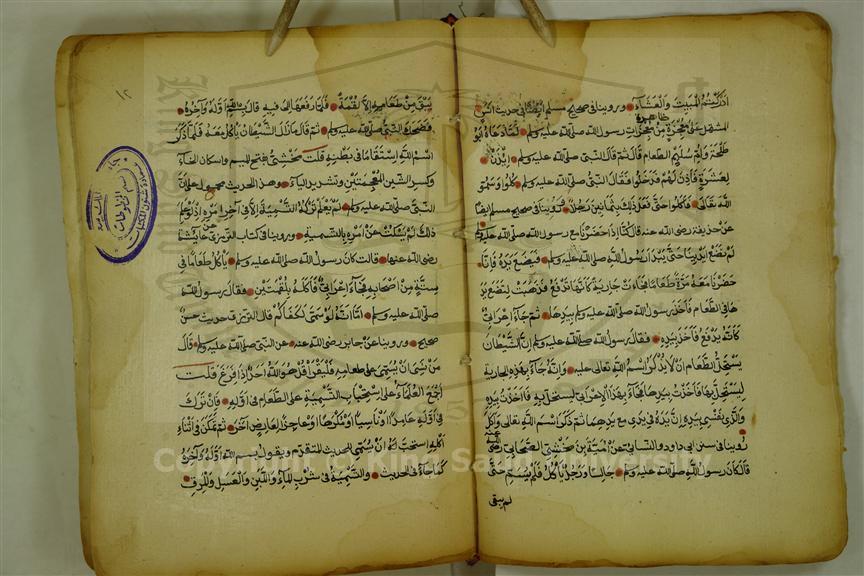 ادركتم المبيت والعشاء وروينا في صحيح مسلم ايضا في حديث انس
المشتمل على معجزة ظاهرة من معجزات رسول الله صلى الله عليه وسلم لما دعاه ابو
طلحة وام سليم للطعام قال ثم قال النبي صلى الله عليه وسلم ايذن
لعشرة فاذن لهم فدخلوا فقال النبي صلى الله عليه وسلم كلوا وسموا
الله تعالى فاكلوا حتى فعل ذلك بثمانين رجلا وروينا في صحيح مسلم ايضا
عن حذيفة رضي الله عنه قال كنا اذا حضرنا مع رسول الله صلى الله عليه وسلم
لم نضع ايدينا حتى يبدا رسول الله صلى الله عليه وسلم فيضع يده وانا
حضرنا معه مرة طعاما فجاءت جارية كانها تدفع فذهبت لتضع يد
ها في الطعام فاخذ رسول الله صلى الله عليه وسلم بيدها ثم جاء اعرابي
كانه يدفع فاخذ بيده فقال رسول الله صلى الله عليه وسلم ان الشيطان
يستحل الطعام ان لا يذكر اسم الله تعالى عليه وانه جاء بهذه الجارية
ليستحل بها فاخذت بيدها فجاء بهذا الاعرابي ليستحل به فاخذت بيده
والذي نفسي بيده ان يده في يدي مع يدهما ثم ذكر اسم الله تعالى واكل
روينا في سنن ابي داود والنسائي عن امية بن مخشي الصحابي رضي الله عنه
قال كان رسول الله صلى الله عليه وسلم جالسا ورجل ياكل فلم يسم حتى
لم يبق
١٢
يبق من طعامه الا لقمة فلما رفعها الى فيه قال بسم الله اوله واخره
فضحك النبي صلى الله عليه وسلم ثم قال ما زال الشيطان ياكل معه فلما ذكر
اسم الله استقاء ما في بطنه قلت مخشي بفتح الميم واسكان الخاء
وكسر الشين المعجمتين وتشديد الياء وهذا الحديث محمول على ان
النبي صلى الله عليه وسلم لم يعلم تركه التسمية الا في اخر امره اذ لو علم
ذلك لم يسكت عن امره بالتسمية وروينا في كتاب الترمذي عن عايشة
رضي الله عنها قالت كان رسول الله صلى الله عليه وسلم ياكل طعاما في
ستة من اصحابه فجاء اعرابي فاكله بلقمتين فقال رسول الله
صلى الله عليه وسلم اما انه لو سمى لكفاكم قال الترمذي حديث حسن
صحيح وروينا عن جابر رضي الله عنه عن النبي صلى الله عليه وسلم قال
من نسي ان يسمي على طعامه فليقرا قل هو الله احد اذا فرغ قلت
اجمع العلماء على استحباب التسمية على الطعام في اوله فان ترك
في اوله عامدا او ناسيا او مكرها او عاجزا لعارض اخر ثم تمكن في اثناء
اكله استحب له ان يسمي للحديث المتقدم ويقول بسم الله اوله واخره
كما جاء في الحديث والتسمية في شرب الماء واللبن والعسل والمرق
Copyright © King Saud University